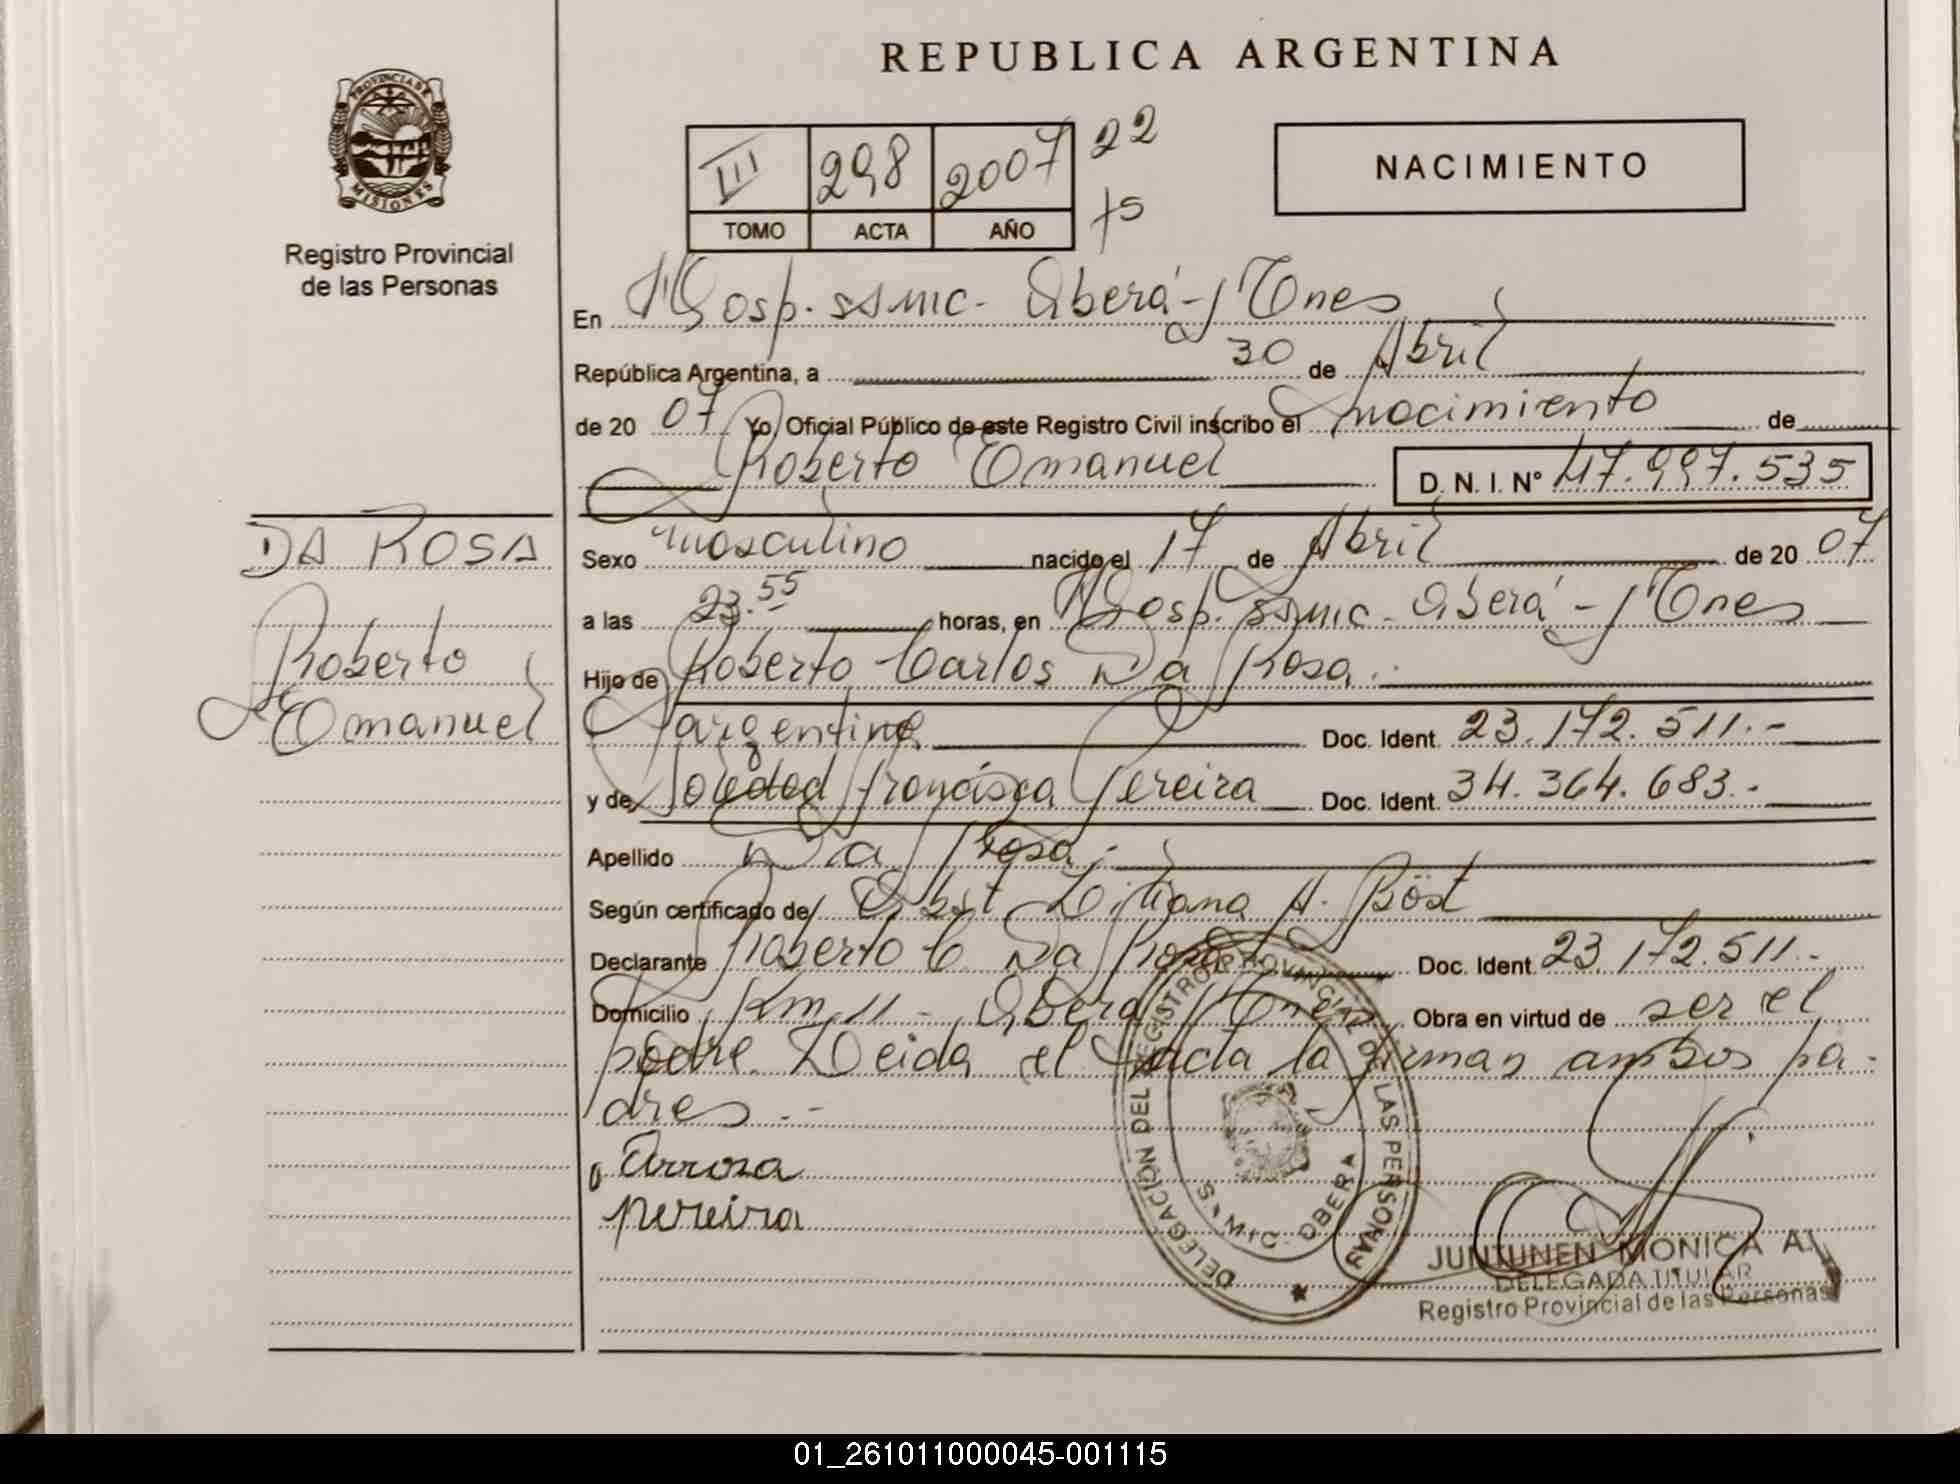 REPUBLICA ARGENTINA
PROVINCIA DE
MISIONES
Registro Provincial
de las Personas
III 298 2007 22
TOMO ACTA AÑO
NACIMIENTO
En Hosp. SSMIC - Oberá - Mnes
República Argentina, a 30 de Abril
de 20 07 Yo, Oficial Público de este Registro Civil inscribo el nacimiento de
Roberto Emanuel D. N. I. Nº 47.997.535
DA ROSA
Roberto
Emanuel
Sexo masculino nacido el 17 de Abril de 20 07
a las 23.55 horas, en Hosp. SSMIC - Oberá - Mnes
Hijo de Roberto Carlos Da Rosa.
argentino Doc. Ident. 23.172.511.-
y de Soledad Francisca Pereira Doc. Ident. 34.364.683.-
Apellido Da Rosa.-
Según certificado de Obst Liliana A. Böst
Declarante Roberto C. Da Rosa Doc. Ident. 23.172.511.-
Domicilio Km 11 - Oberá Mnes Obra en virtud de ser el
padre. Leida el acta la firman ambos pa-
dres.-
Pereira
DELEGACIÓN DEL REGISTRO PROVINCIAL DE LAS PERSONAS
S.MIC. OBERA
JUNTUNEN MONICA A.
DELEGADA TITULAR
Registro Provincial de las Personas
01_261011000045-001115